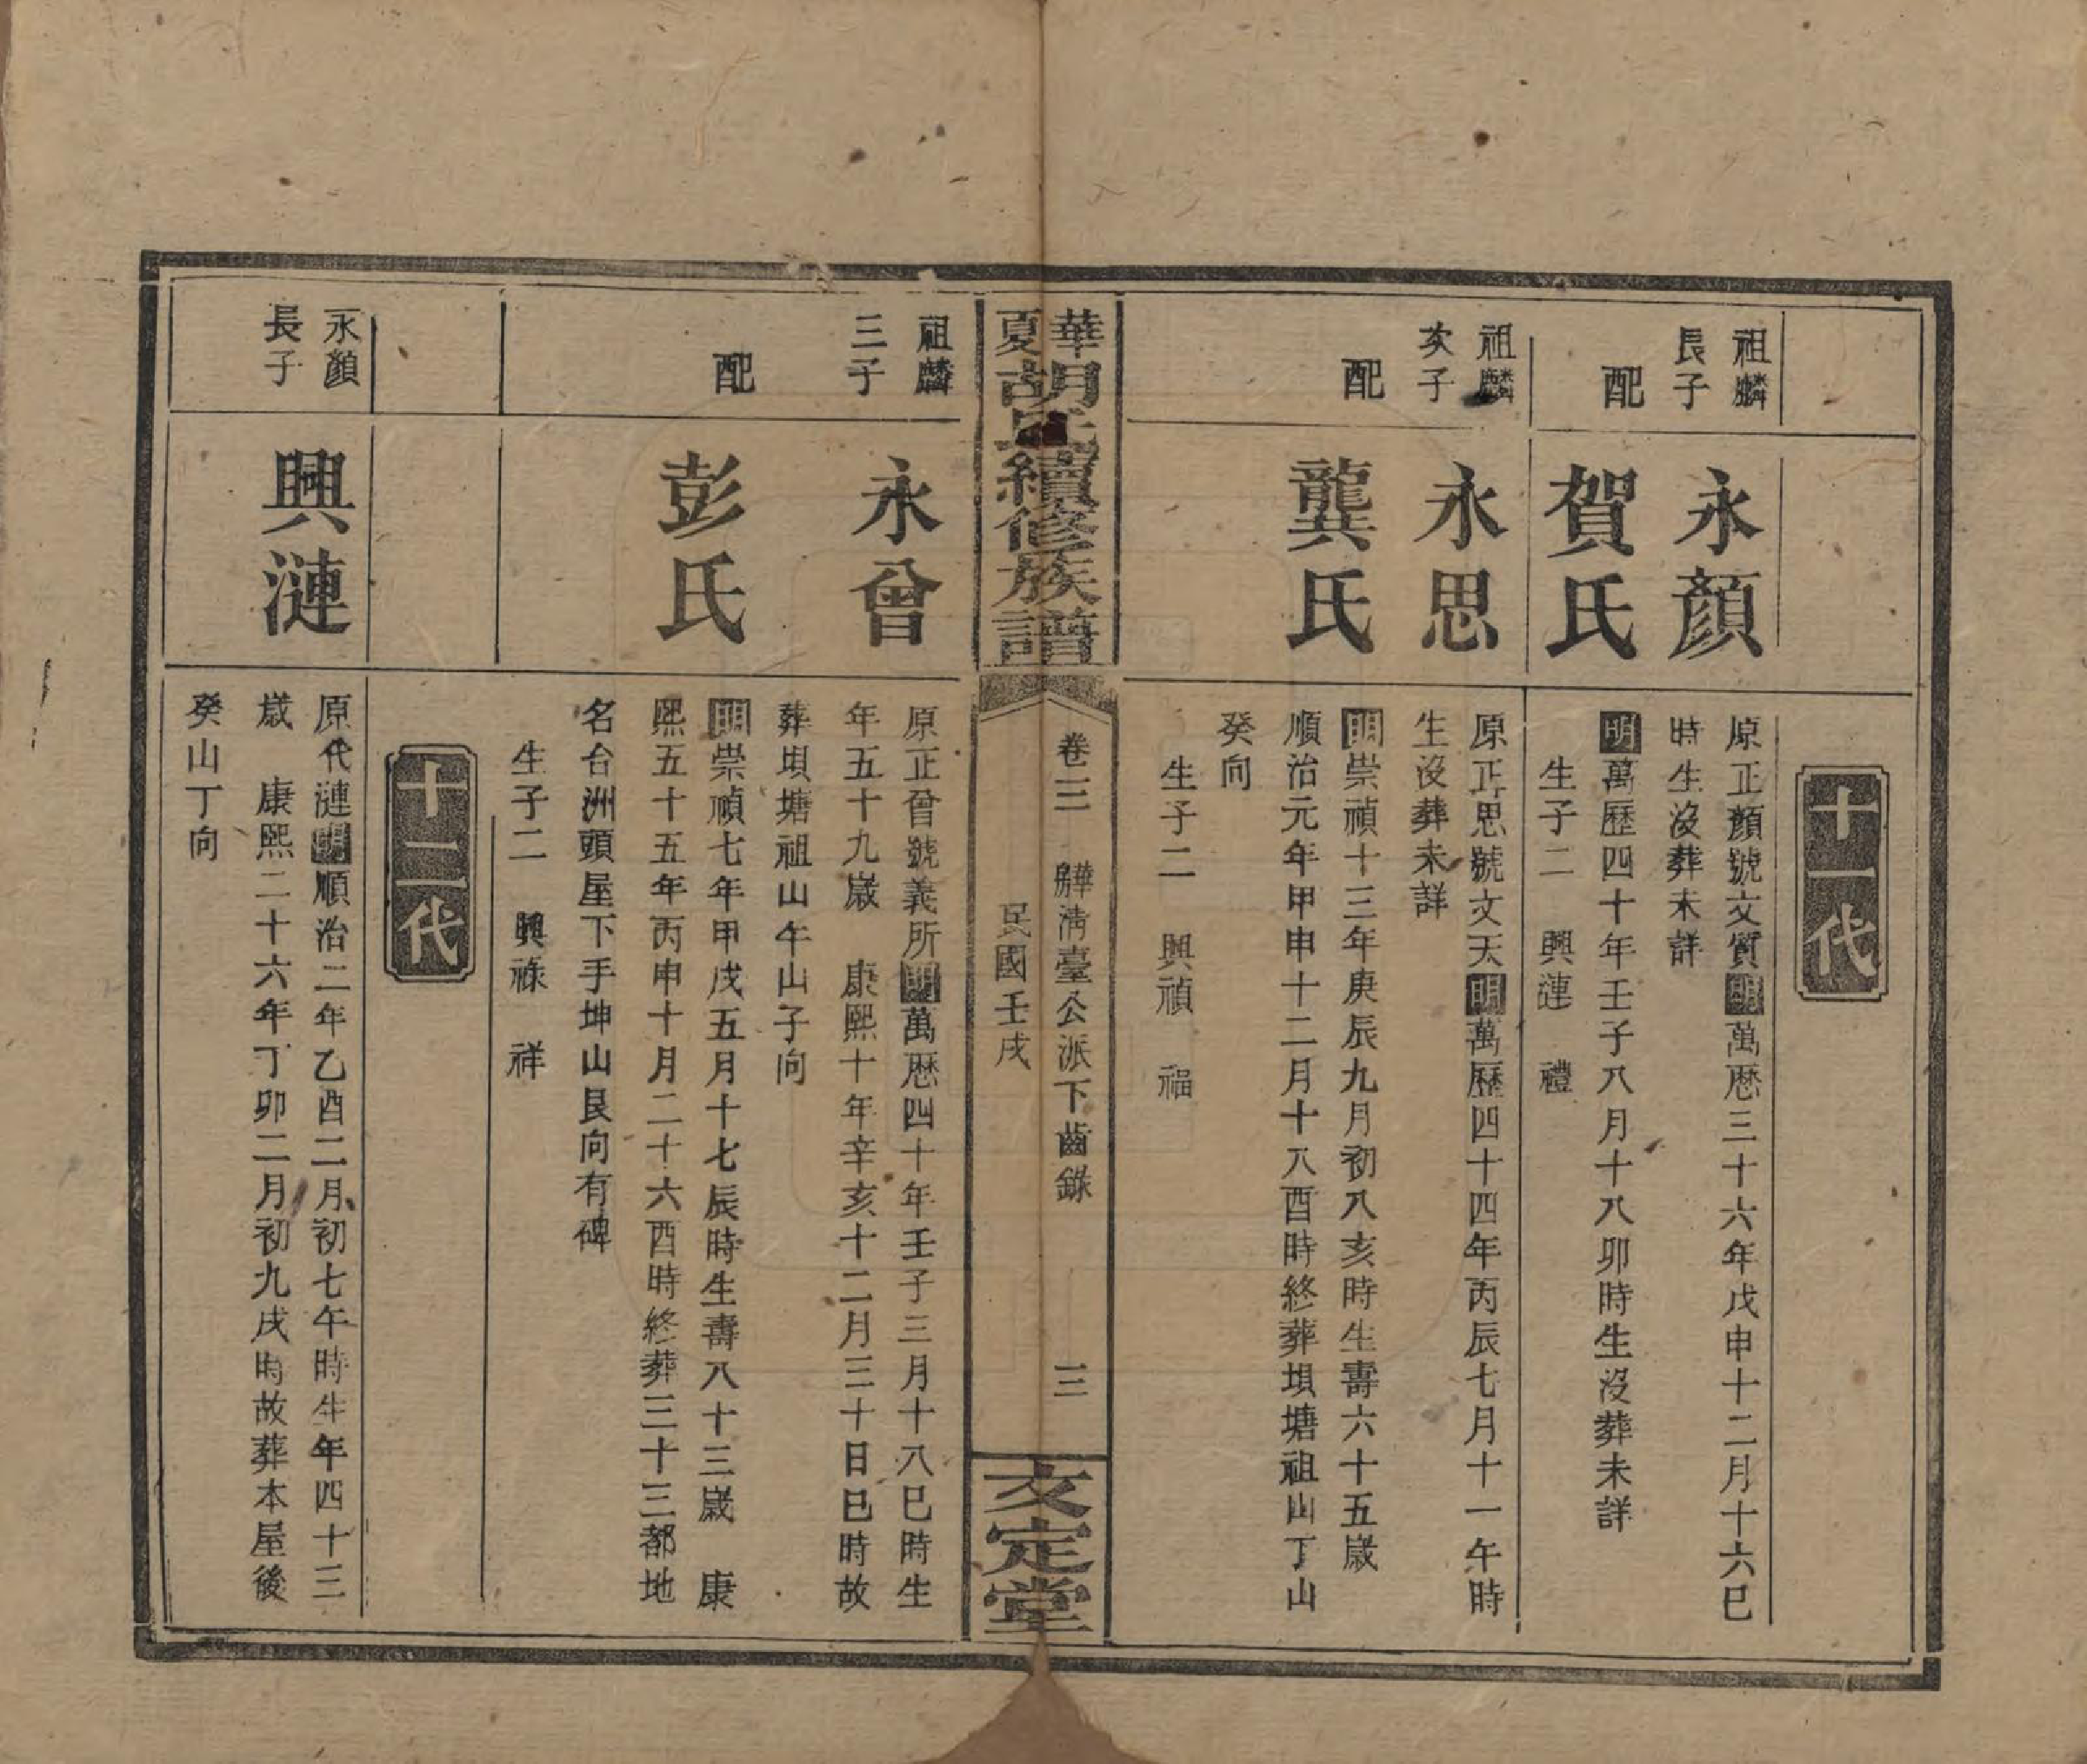 十一代
祖麟
長子
永顏
原正顏號文質明萬歷三十六年戊申十二月十六巳
時生沒葬未詳
配
賀氏
明萬歷四十年壬子八月十八卯時生沒葬未詳
生子二　興漣　禮
祖麟
次子
永思
原正思號文天明萬歷四十四年丙辰七月十一午時
生沒葬未詳
配
龔氏
明崇禎十三年庚辰九月初八亥時生壽六十五歲
順治元年甲申十二月十八酉時終葬垻塘祖山丁山
癸向
生子二　興禎　福
華夏胡氏續修族譜
卷三　清臺公派下齒錄　三
民國壬戌
文定堂
祖麟
三子
永曾
原正曾號義所明萬歷四十年壬子三月十八巳時生
年五十九歲　康熙十年辛亥十二月三十日巳時故
葬垻塘祖山午山子向
配
彭氏
明崇禎七年甲戌五月十七辰時生壽八十三歲　康
熙五十五年丙申十月二十六酉時終葬三十三都地
名台洲頭屋下手坤山艮向有碑
生子二　興祿　祥
十二代
永顏
長子
興漣
原代漣明順治二年乙酉二月初七午時生年四十三
歲　康熙二十六年丁卯二月初九戌時故葬本屋後
癸山丁向